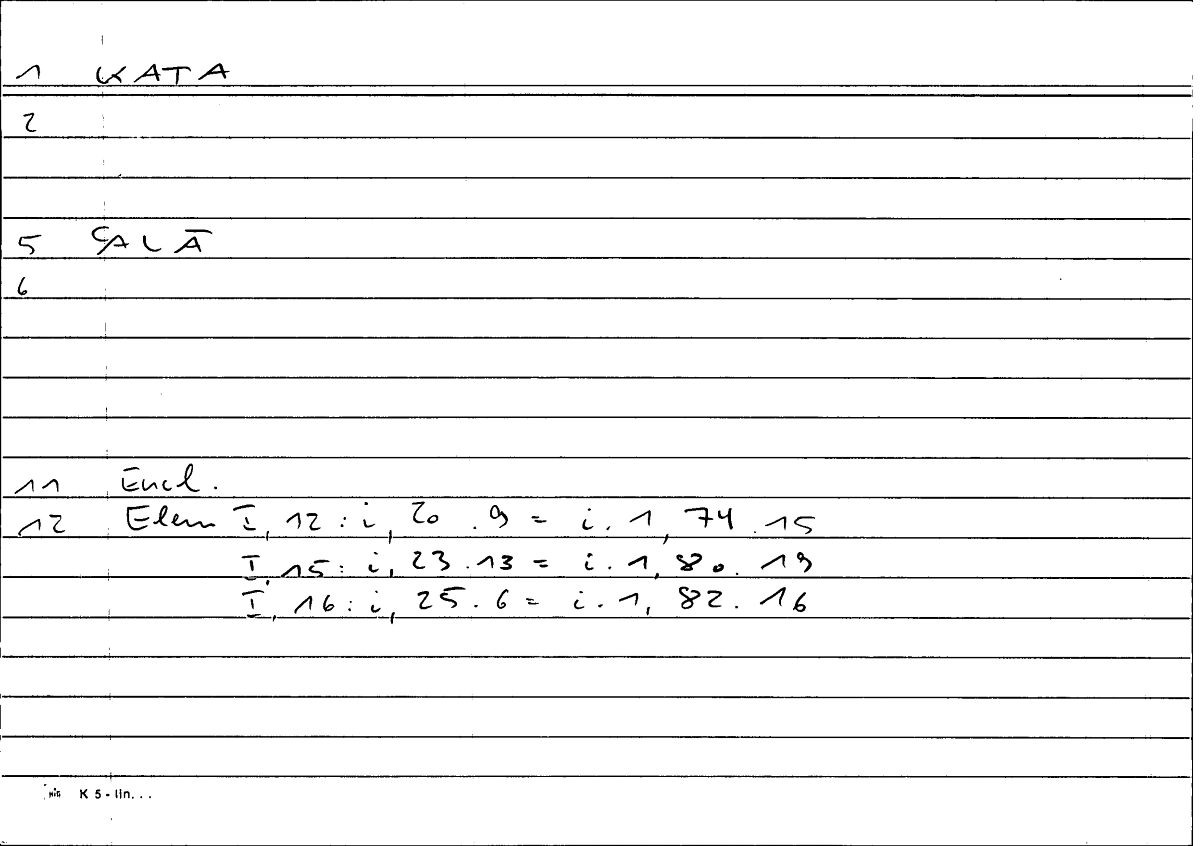 1 KATA
2
5 ʿALĀ
6
11 Eucl.
12 Elem I, 12 : i, 20 . 9 = i . 1, 74 . 15
I, 15 : i, 23 . 13 = i . 1, 80 . 19
I, 16 : i, 25 . 6 = i . 1, 82 . 16
K 5 - lin. . .